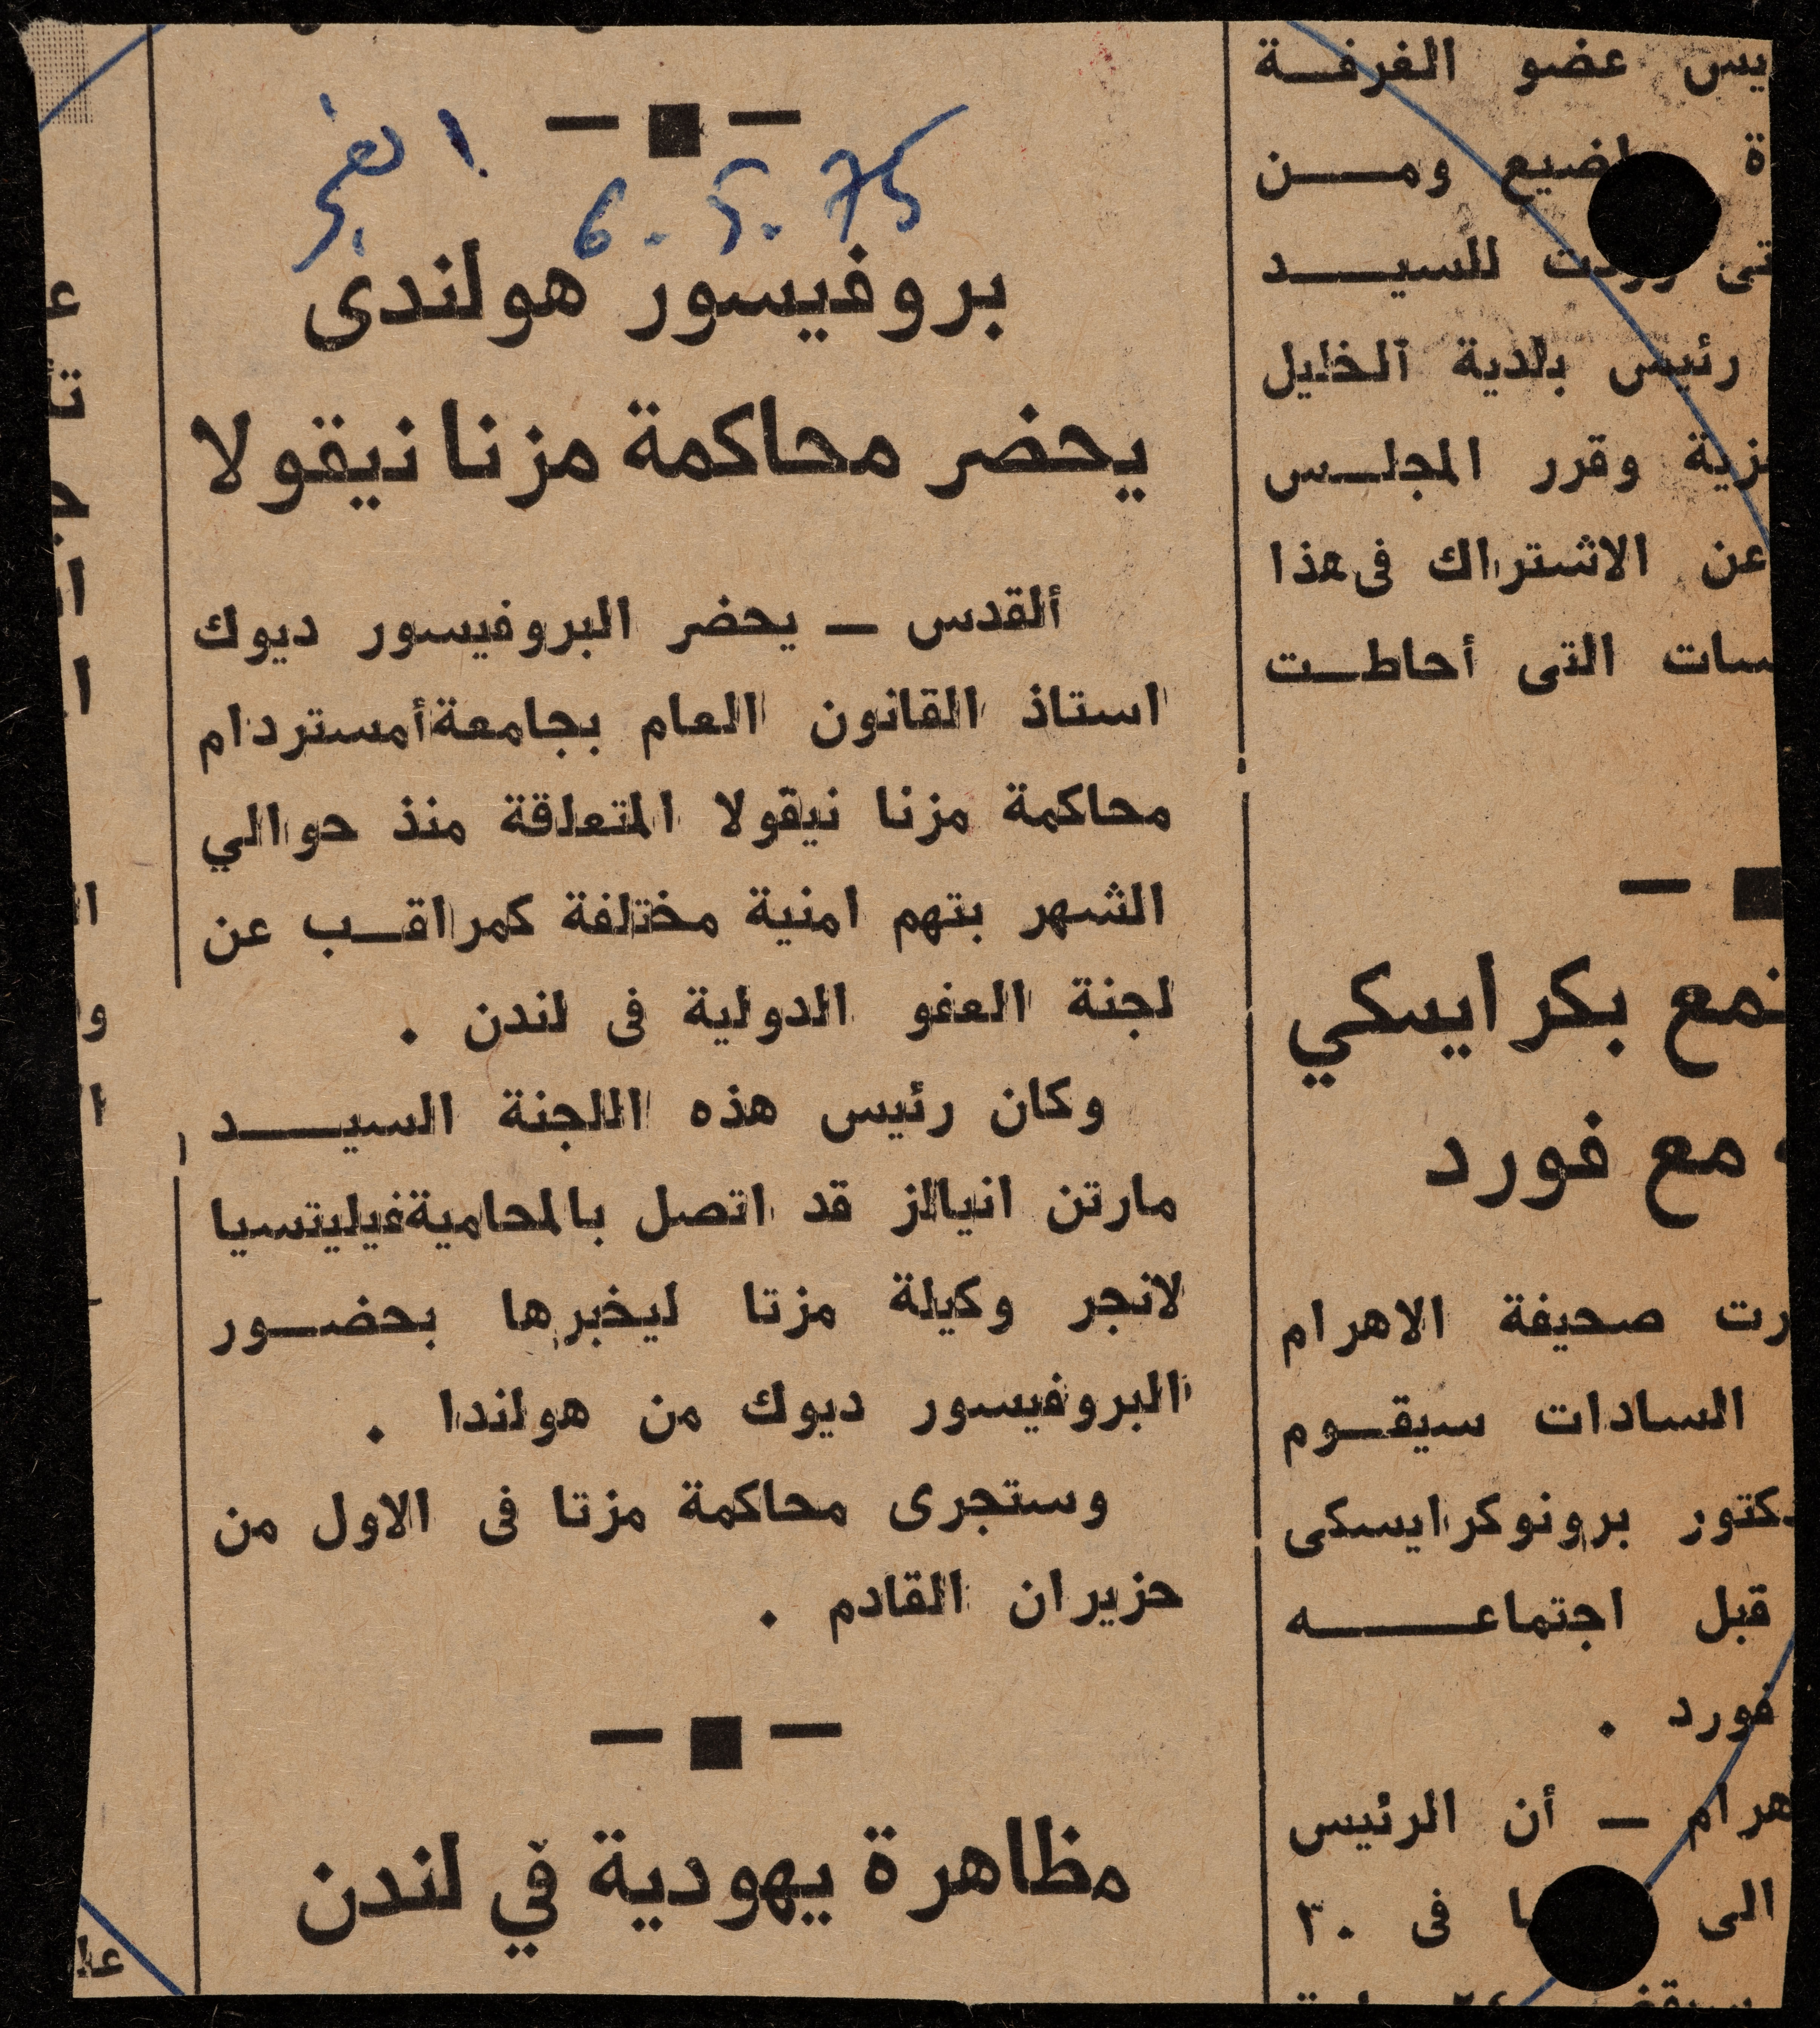 الفجر
6.5.75
بروفيسور هولندى
يحضر محاكمة مزنا نيقولا
ألقدس — يحضر البروفيسور ديوك
استاذ القانون العام بجامعة أمستردام
محاكمة مزنا نيقولا المتعلقة منذ حوالي
الشهر بتهم امنية مختلفة كمراقـب عن
لجنة العفو الدولية فى لندن .
وكان رئيس هذه اللجنة السيـــد
مارتن انيالز قد اتصل بالمحامية فيليتسيا
لانجر وكيلة مزتا ليخبرها بحضــور
البروفيسور ديوك من هولندا .
وستجرى محاكمة مزتا فى الاول من
حزيران القادم .
مظاهرة يهودية في لندن
يس عضو الغرفــة
ومـــن
للسيـــد
رئيس بلدية الخليل
زية وقرر المجلــس
عن الاشتراك فى هذا
سات التى أحاطــت
بكرايسكي
مع فورد
رت صحيفة الاهرام
السادات سيقــوم
كتور برونوكرايسكى
قبل اجتماعــــه
فورد .
هرام — أن الرئيس
الى فى ٣٠